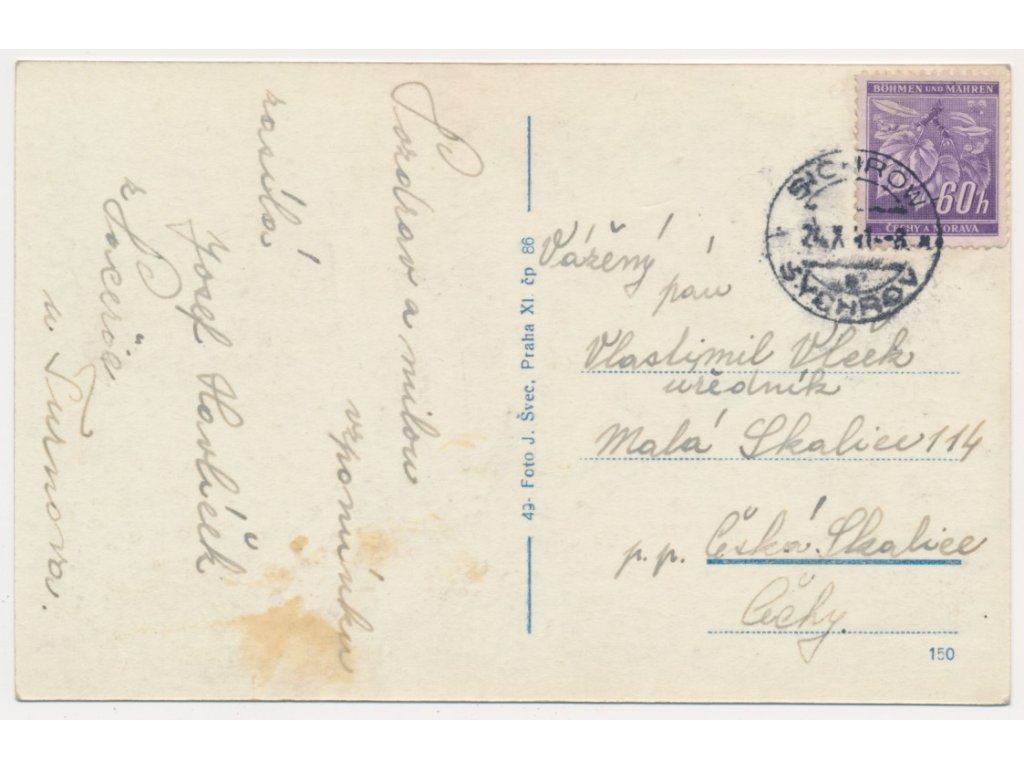 Pozdrav a milou
vzpomínku
zasílá
Josef Havlíček
z
u Turnova.
49- Foto J. Švec, Praha XI. čp 86
BÖHMEN UND MÄHREN
60h
ČECHY A MORAVA
SICHROW
24.X.41-8
SYCHROV
Vážený
pán
Vlastimil Vlcek
uředník
Malá Skalice 114
p.p. Česká Skalice
Čechy
150